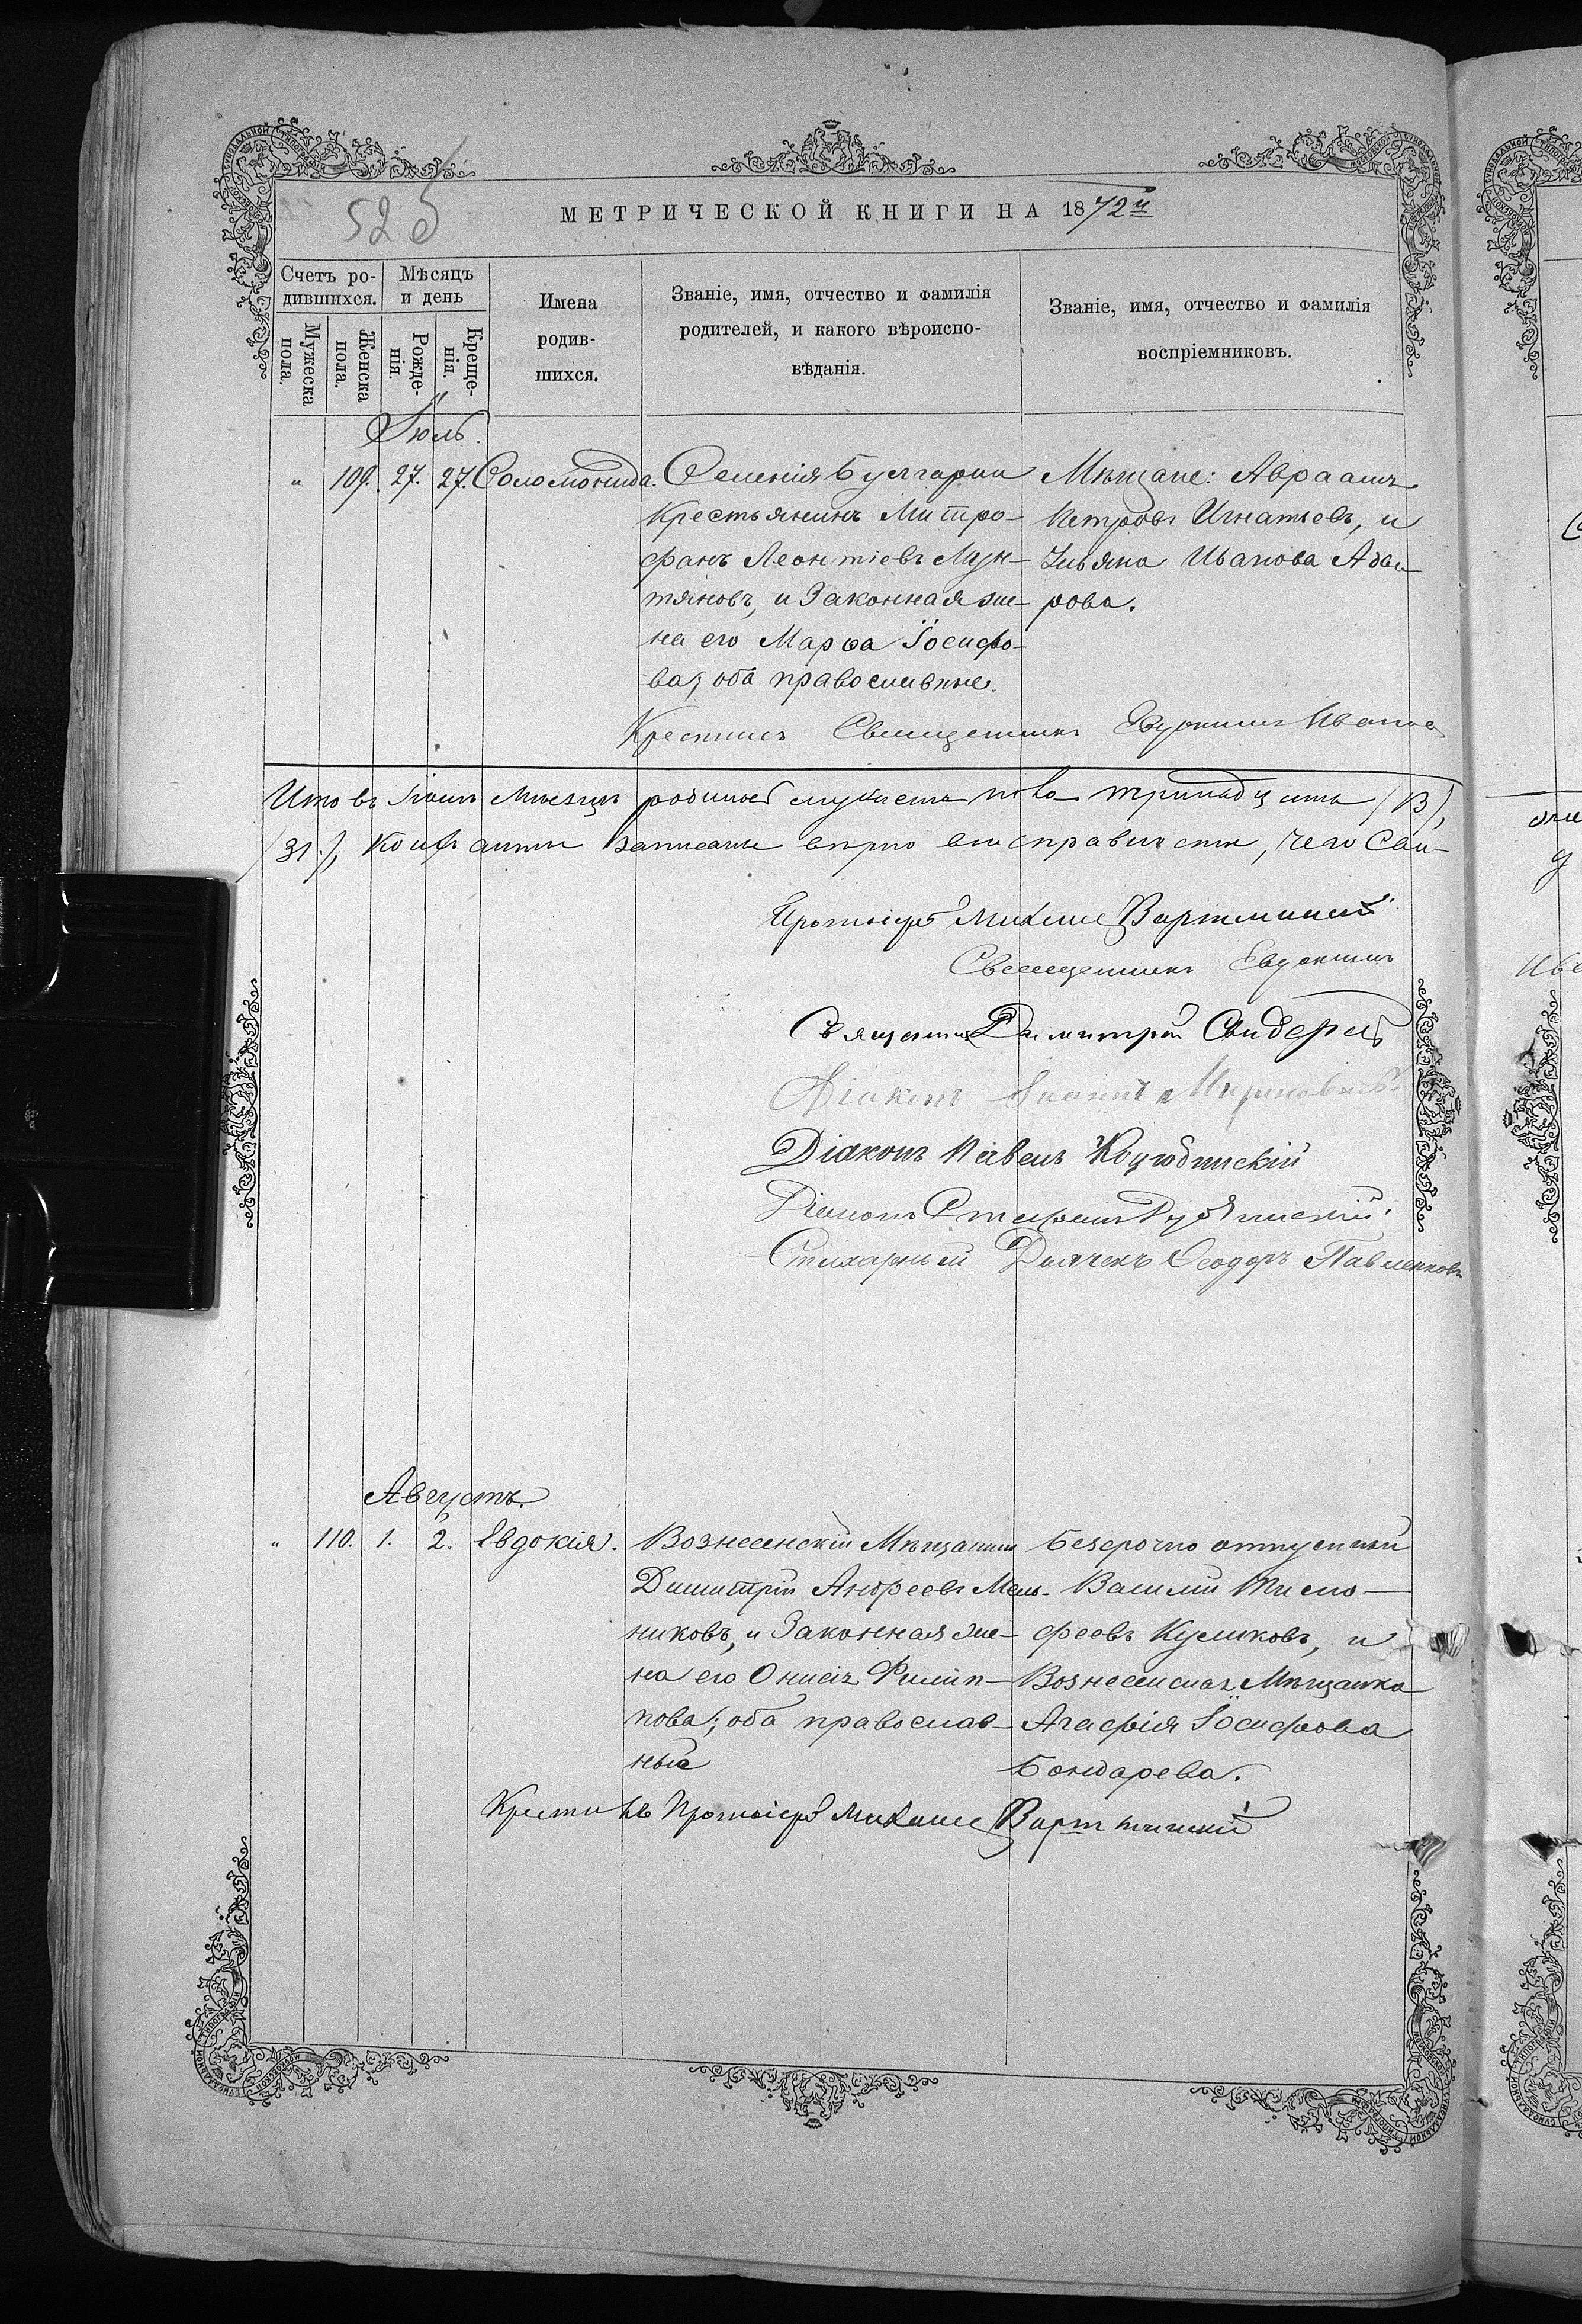 525
МЕТРИЧЕСКОЙ КНИГИ НА 1872й
Счетъ ро-
дившихся.
Мѣсяцъ
и день
Мужеска
пола.
Женска
пола.
Рожде-
нія.
Креще-
нія.
Имена
родив-
шихся.
Званіе, имя, отчество и фамилія
родителей, и какого вѣроиспо-
вѣданія.
Званіе, имя, отчество и фамилія
воспріемниковъ.
Іюль.
" 109. 27. 27. Соломонида.
Селенія Булгарии
Крестьянинъ Митро-
фанъ Леонтіевъ Мун-
тяновъ, и Законная же-
на его Марѳа Іосифо-
ва; оба православные.
Мѣщане: Авраамъ
Петровъ Игнатьевъ, и
Ульяна Иванова
рова.
Крестилъ Священникъ Евдокимъ
Итого въ мѣсяцѣ родилось мужеска пола тринадцать (13),
записаны вѣрно
Протоіерей Михаилъ
Священникъ Евдокимъ
Священникъ Димитрій
Діаконъ Іоаннъ
Діаконъ Павелъ Коцюбинскій
Діаконъ Стефанъ
Стихарный Дьячекъ Ѳеодоръ Павленковъ
Августъ.
" 110. 1. 2. Евдокія.
Вознесенскій Мѣщанинъ
Димитрій Андреевъ Мель-
никовъ, и Законная же-
на его Онисія Филип-
пова; оба православ-
ные
Безсрочно отпускной
Василій Тимо-
феевъ Куликовъ, и
Вознесенская Мѣщанка
Агафія Іосифова
Бондарева.
Крестилъ Протоіерей Михаилъ